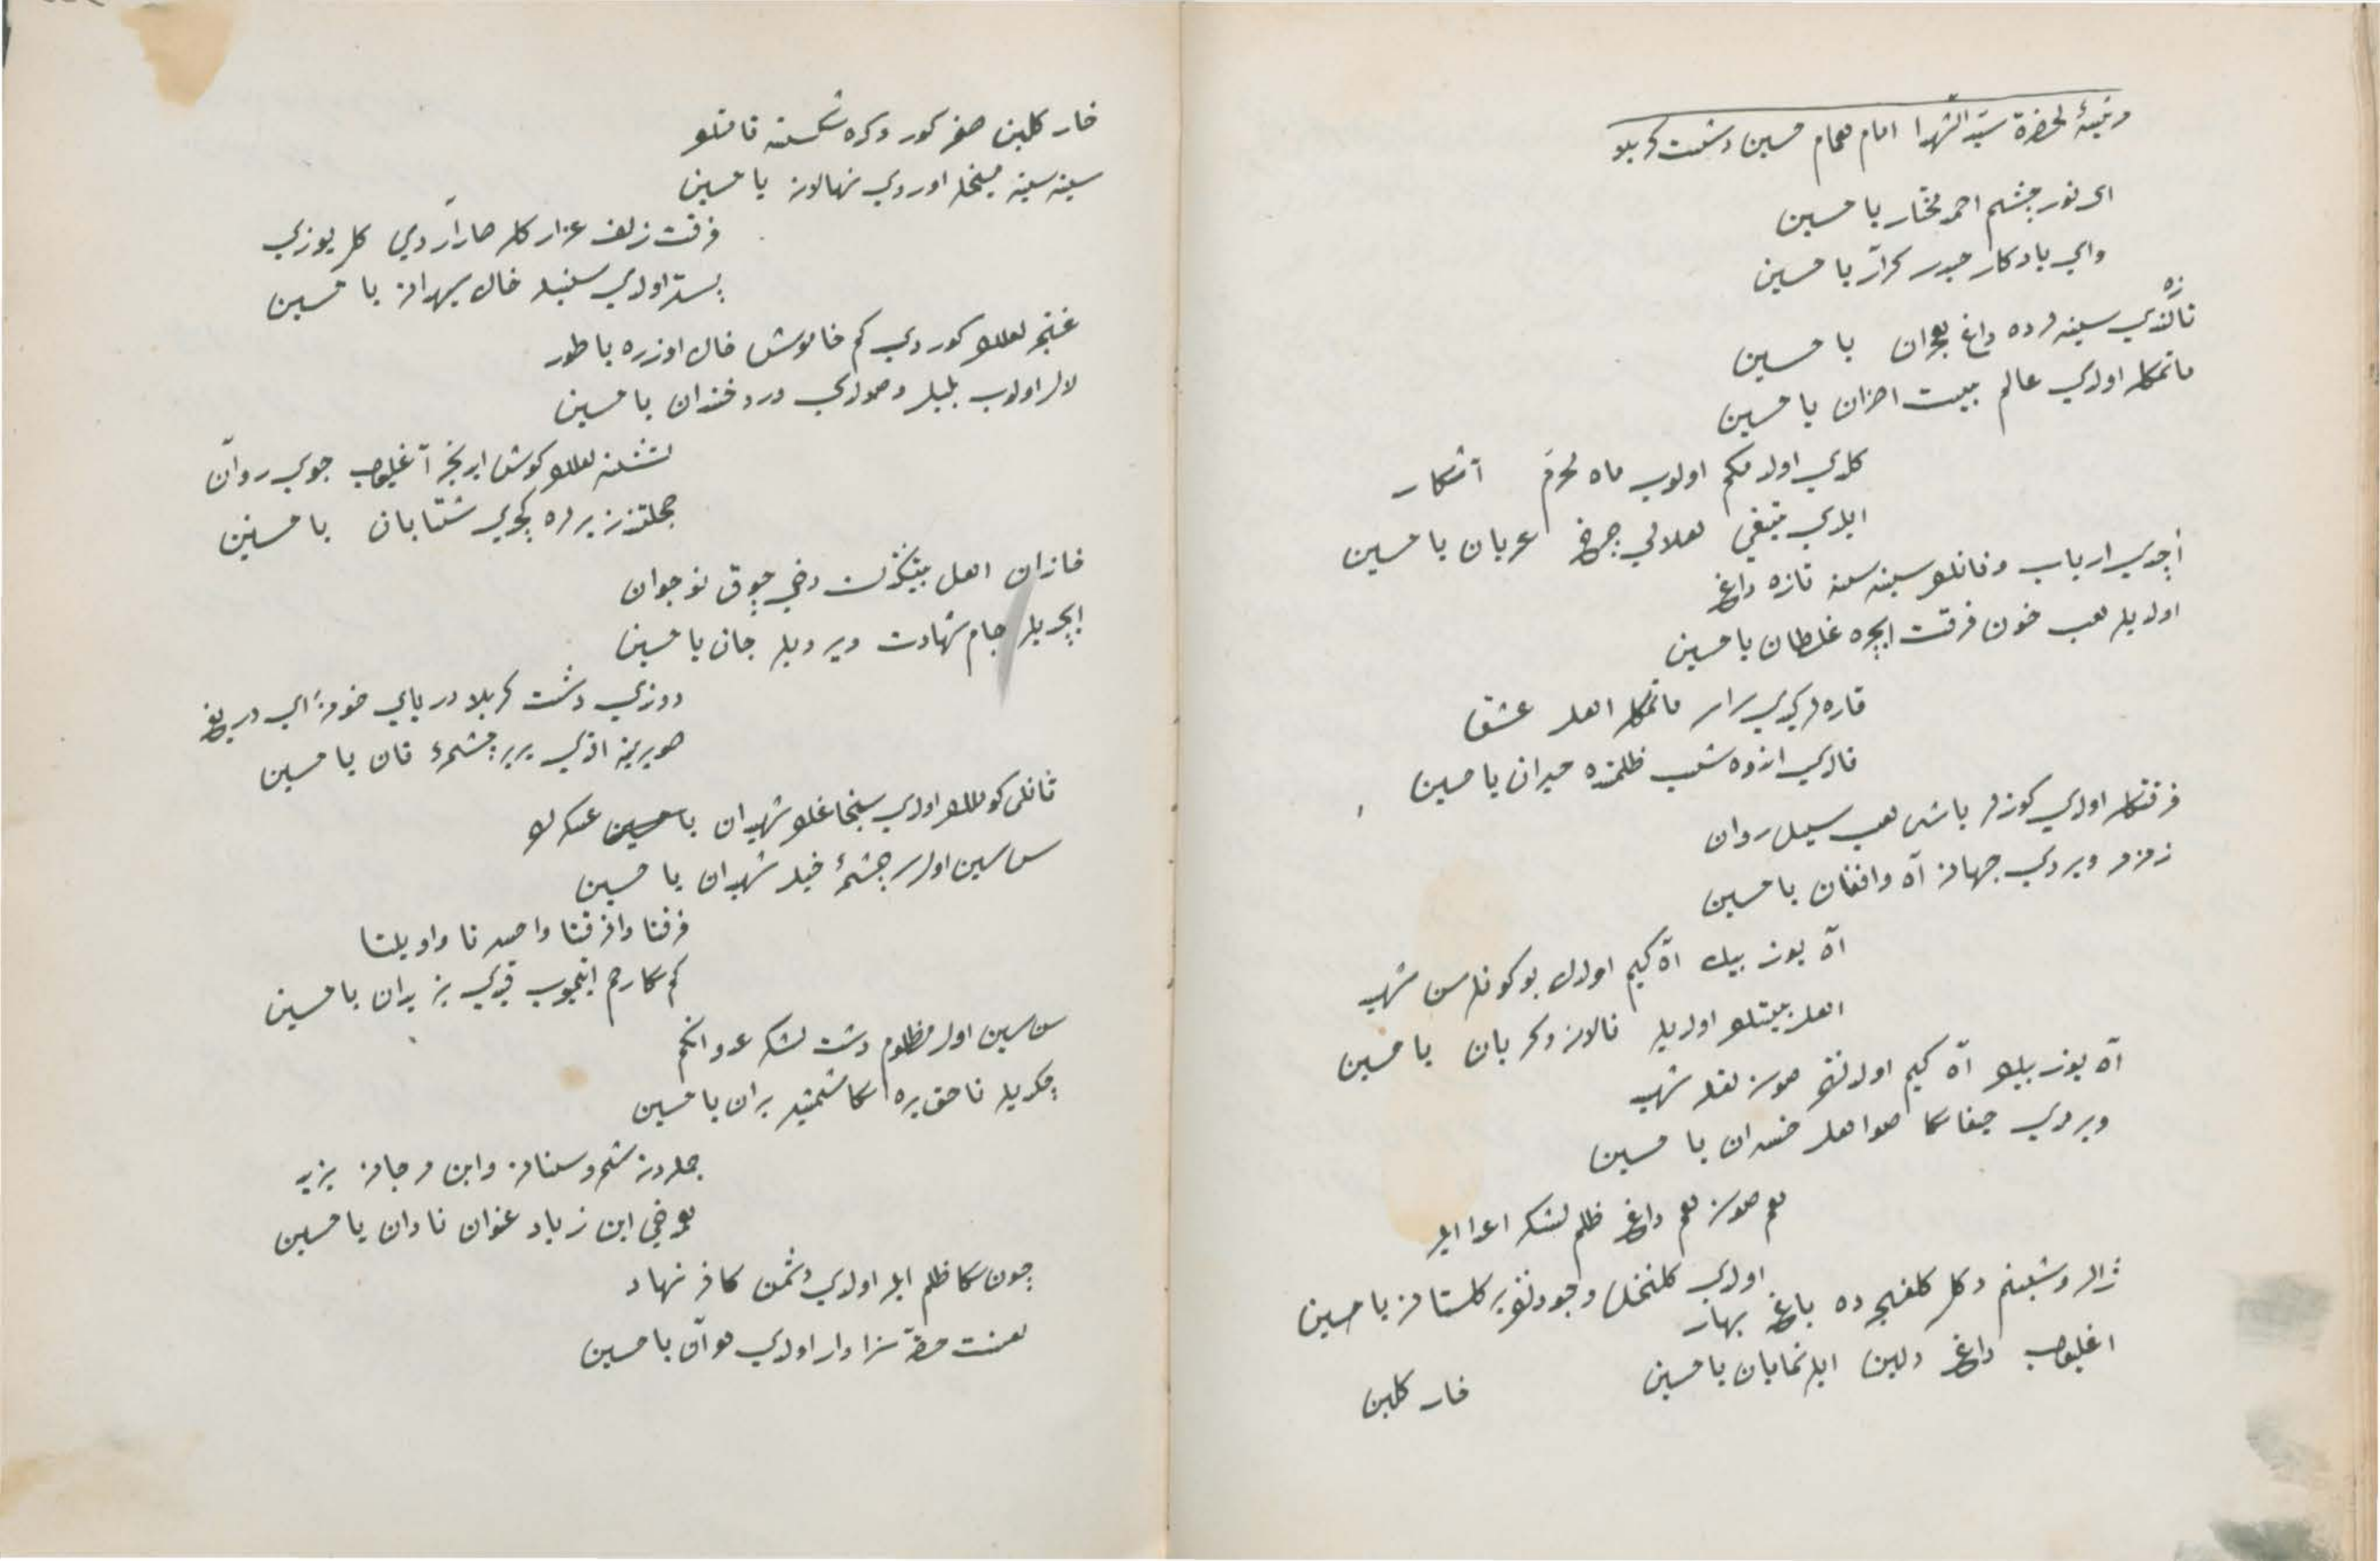 مرثیهٔ لحضرة سیّد الشهدا امام همام حسین دشت کربلا
ای نور چشم احمد مختار یا حسین
وای یادکار حیدر کرّار یا حسین
تازه‌لندی سینه‌لرده داغ هجران یا حسین
ماتمکله اولدی عالم بیت احزان یا حسین
کلدی اول دمکم اولوب ماه محرّم آشکار
ایلدی تیغی هلالی چرخ عریان یا حسین
آچدی ارباب وفانك سینه‌سنه تازه داغ
اولدیلر هب خون فرقت ایچره غلطان یا حسین
قاره‌لر کیدی سراسر ماتمکله اهل عشق
قالدی اندوه شب ظلمده حیران یا حسین
فرقتکله اولدی کوزلر یاشی هب سیل روان
زمزمه ویردی جهانه آه وافغان یا حسین
آه یوز بیك آه کیم اولدك بو کونلر سن شهید
اهل بیتك اولدیلر نالان وکریان یا حسین
آه یوز بیك آه کیم اولدك صوسزلقله شهید
ویردی جفا سکا اهل خسران یا حسین
هم صوسز هم داغ ظلم لشکر اعدا ایله
اولدی کلنخل وجودك بر کلستان یا حسین
ژاله وشبنم دکل کلغنچه‌ده باغ بهار
اغلیوب داغ دلین ایلر نمایان یا حسین
خار کلبن
خار کلبن صنمه کور دکره شکسته قانلو
سینه سینه میخلر اوردی نهالان یا حسین
فرقت زلف عذارکله صاراردی کل یوزی
بستر اولدی سنبله خاك بیهان یا حسین
غنچه لعلك کوردی کم خاموش خاك اوزره یاطور
لال اولوب بلبل وصولدی ورد خندان یا حسین
تشنه لعلك کوش ایدنجه آغلیوب جوی روان
خجلتندن یرلره کچدی شتابان یا حسین
خاندان اهل بیتکدن دخی چوق نوجوان
ایچدیلر جام شهادت ویردیلر جان یا حسین
دوندی دشت کربلا دریای خونه ای دریغ
صو یرینه اقدی یر یر چشمهٔ قان یا حسین
قانلی کوملك اولدی سنجاغك شهیدان عسکرك
سن سین اول سرچشمهٔ خیل شهیدان یا حسین
فرقتا وافرقتا واحسرتا واویلتا
کم سکا رحم ایتمیوب قیدی یزیدان یا حسین
سن سین اول مظلوم دشت لشکر عدوانکم
چکدیلر ناحق یره سکا شمشیر بران یا حسین
جمله‌دن شمر وسنان وابن مرجان یزید
هم دخی ابن زیاد عنوان نادان یا حسین
چون سکا ظلم ایلر اولدی دشمن کافر نهاد
لعنت حقّه سزاوار اولدی هر آن یا حسین